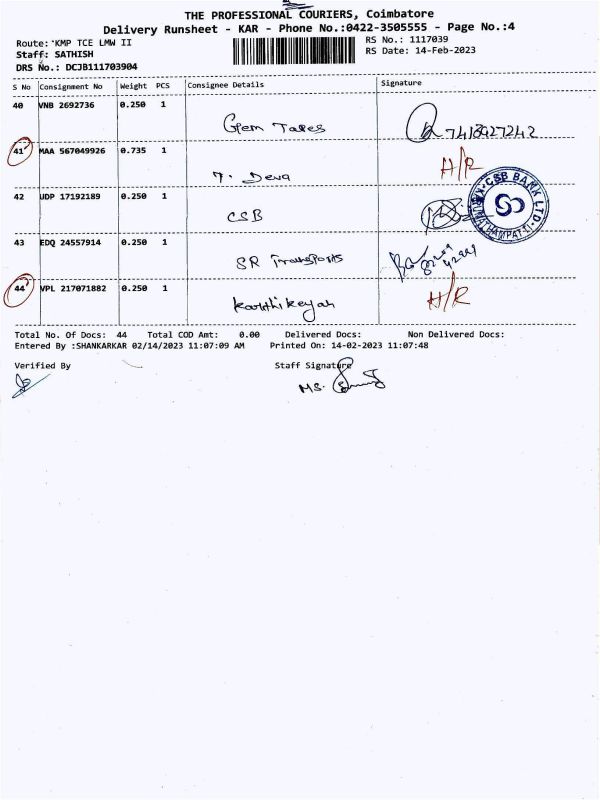 THE PROFESSIONAL COURIERS, Coimbatore
Delivery Runsheet - KAR - Phone No.:0422-3505555 - Page No.:4
Route: KMP TCE LMW II
RS No.: 1117039
Staff: SATHISH
RS Date: 14-Feb-2023
DRS No.: DCJB111703904
S No Consignment No Weight PCS Consignee Details Signature
40 VNB 2692736 0.250 1
Gem Tares 7418927242
41 MAA 567049926 0.735 1 H/R
T. Deva
42 JDP 17192189 0.250 1
CSB
CSB BANK LTD.
43 EDQ 24557914 0.250 1
SR Transports
44 VPL 217071882 0.250 1 H/R
Karthikeyan
Total No. Of Docs: 44 Total COD Amt: 0.00 Delivered Docs: Non Delivered Docs:
Entered By :SHANKARKAR 02/14/2023 11:07:09 AM Printed On: 14-02-2023 11:07:48
Verified By Staff Signature
MS.